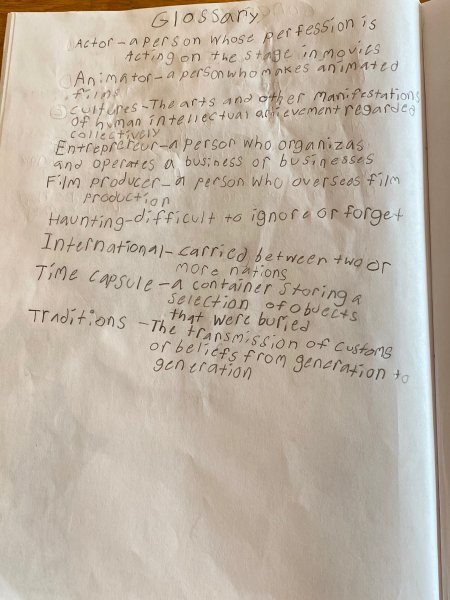 Glossary
Actor - a person whose perfession is
Acting on the stage in movies
Animator - a person who makes animated
films
cultures - The arts and other manifestations
of human intellectual achievement regarded
collectively
Entrepreneur - a person who organizas
and operates a business or businesses
Film producer - a person who oversees film
production
Haunting - difficult to ignore or forget
International - carried between two or
more nations
Time capsule - a container storing a
selection of objects
that were buried
Traditions - The transmission of customs
or beliefs from generation to
generation